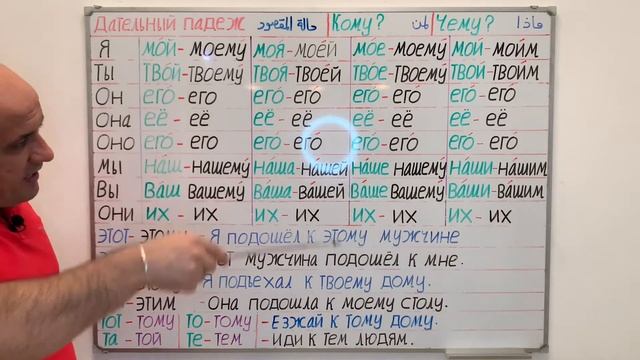 Дательный падеж حالة المقصود Кому? لمن Чему? ماذا
Я мой - моему моя́ - моей мое - моему мои́ - мои́м
Ты твой - твоему твоя́ - твоей твое - твоему твои́ - твои́м
Он его́ - его́ его́ - его́ его́ - его́ его́ - его́
Она её - её её - её её - её её - её
Оно его́ - его́ его́ - его́ его́ - его́ его́ - его́
Мы на́ш - нашему́ на́ша - на́шей на́ше нашему́ на́ши - на́шим
Вы Ва́ш Вашему́ Ва́ша - Ва́шей Ва́ше Вашему́ Ва́ши - Ва́шим
Они их - их их - их их - их их - их
этот - Я подошёл к этому мужчине
мужчина подошёл к мне.
Я подъехал к твоему дому.
- этим - Она подошла к моему столу.
тот - тому то - тому - Езжай к тому дому.
та - той те - тем - иди к тем людям.